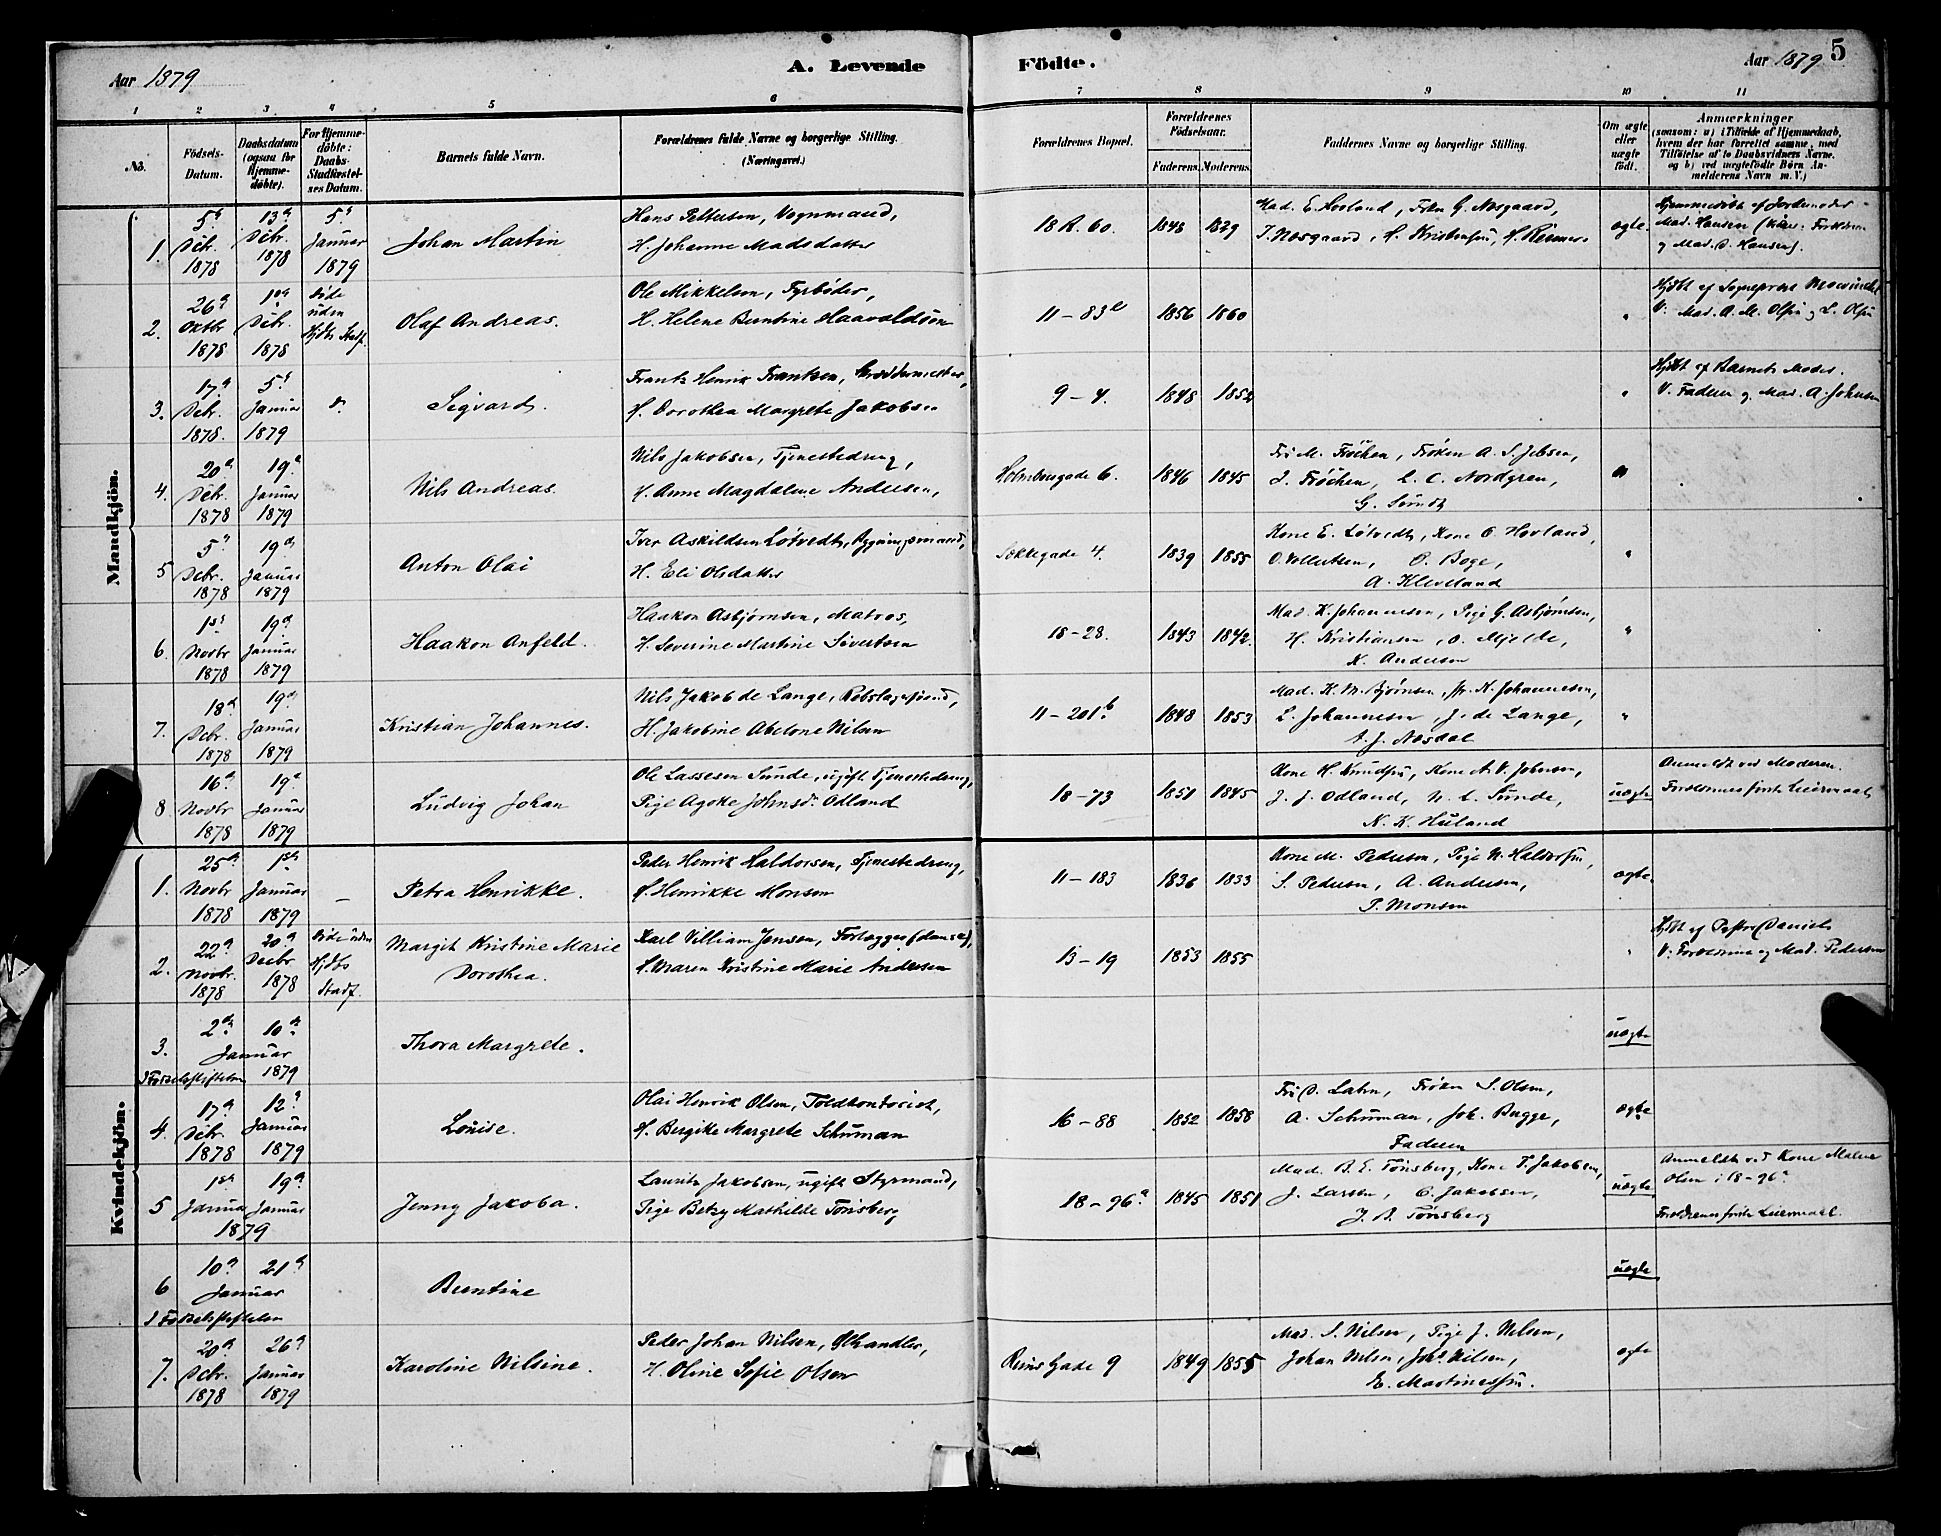 Aar 1879
A. Levende
Födte.
Aar 1879
5
1 2 3 4 5 6 7 8 9 10 11
No.
Födsels-Datum.
Daabsdatum (ogsaa for Hjemmedöbte).
For Hjemmedöbte: Daabs-Stadfæstelses Datum.
Barnets fulde Navn.
Forældrenes fulde Navne og borgerlige Stilling. (Næringsvei.)
Forældrenes Bopæl.
Forældrenes Födselsaar.
Faderens. Moderens.
Faddernes Navne og borgerlige Stilling.
Om ægte eller uægte födt.
Anmærkninger
(saasom: a) i Tilfælde af Hjemmedaab, hvem der har forrettet samme, med Tilföielse af to Daabsvidners Navne. og b) ved uægtefödte Börn Anmelderens Navn m. V.)
Mandkjön.
1. 5te Debr. 1878
13de Debr. 1878
5te Januar 1879
Johan Martin
Hans Pettersen, Vognmand,
H. Johanne Madsdatter
18 R. 60.
1848 1829
Mad. E. Hovland, Frkn G. Nesgaard,
J. Nesgaard, H. Kristensen,
ægte.
Hjemmedöbt af Jordmoder
Mad. Hansen
og Mad. O. Hansen).
2. 26de Oktbr 1878
1ste Debr. 1878
Döde uden Hjdbs Stadf.
Olaf Andreas.
Ole Mikkelsen, Fyrböder,
H. Helene Berntine Haavaldsen
11 – 83b
1856 1860
"
Hjdbt af Sognepræst
V. Mad. A. M. Olsen og L. Olsen
3. 17de Debr. 1878.
5te Januar 1879
Do
Sigvard.
Frantz Henrik Frantzen,
H. Dorothea Margrete Jakobsen
9 – 4.
1848 1852
"
Hjdbt af Barnets Moder.
V. Faderen og Mad. A. Johnsen
4. 20de Debr. 1878
19de Januar 1879
Nils Andreas.
Nils Jakobsen, Tjenestedreng,
H. Anne Magdalene Andersen,
6.
1846 1845
Fru M. Fröchen, Fröken A. S. Jebsen,
J. Fröchen, L. C. Nordgren,
G. Sundt
"
5 5te Debr. 1878
19de Januar 1879
Anton Olai
Iver Askildsen Lötvedt, Bygningsmand,
H. Eli Olsdatter
Sekkegade 4.
1839 1855
Kone E. Lötvedt, Kone O. Hovland,
O. Vollertsen, O. Boge,
A. Kleveland
"
6. 1ste Novbr 1878
19de Januar 1879
Haakon Anfeld.
Haakon Asbjörnsen, Matros,
H. Severine Martine Sivertsen
18 – 28.
1843 1842.
Mad. K. Johannesen, Pige G. Asbjörnsen,
H. Kristiansen, O. Mjelde,
K. Andersen
"
7. 18de Debr. 1878
19de Januar 1879
Kristian Johannes.
Nils Jakob de Lange, Rebslagersvend,
H. Jakobine Abelone Nilsen
11 – 201b
1848 1853
Mad. K. M. Björnsen, Jfr. K. Johannesen,
L. Johannesen, J. de Lange,
A. J. Nesdal
"
8 16de Novbr 1878
19de Januar 1879
Ludvig Johan
Ole Lassesen Sunde, ugift Tjenestedreng,
Pige Agote Johnsdr Odland
18 – 73
1851 1845
Kone H. Knudsen, Kone A. V. Johnsen,
J. J. Odland, N. L. Sunde,
N. K. Huland
uægte
Anmeldt ved Moderen.
Forældrenes förste Leiermaal
Kvindekjön.
1. 25de Novbr 1878
1ste Januar 1879
–
Petra Henrikke.
Peder Henrik Haldorsen, Tjenestedreng,
H. Henrikke Monsen
11 – 183
1836 1833
Kone M. Pedersen, Pige N. Haldorsen,
S. Pedersen, A. Andersen,
P. Monsen
ægte
2. 22de Novbr. 1878
20de Decbr 1878
Döde uden Hjdbs Stadf.
Margit Kristine Marie
Dorothea.
Karl Villiam Jensen, Forlægger (dansk),
H. Maren Kristine Marie Andersen
13 – 19
1853 1855
"
Hjdbt af Pastor Daniels
V: Forældrene og Mad. Pedersen
3. 2den 10de
Januar
1879
I Fødselsstiftelsen
Thora Margrete.
uægte
4. 17de Debr. 1878
12te Januar 1879
Louise.
Olai Henrik Olsen, Toldkontorist,
H. Bergite Margrete Schuman
16 – 88
1852 1858
Fru D. Lahn, Fröken S. Olsen,
A. Schuman, Joh. Bugge,
Faderen
ægte
5 1ste Januar
19de Januar
1879
Jenny Jakoba.
Laurits Jakobsen, ugift Styrmand,
Pige Betzy Mathilde Tönsberg
18 – 96a
1845 1851
Mad. B. E. Tönsberg, Kone T. Jakobsen,
J. Larsen, C. Jakobsen,
J. B. Tönsberg
uægte
Anmeldt ved Kone Malene
Olsen i 18-96a
Forældrenes förste Leiermaal.
6 10de 21de
Januar
I Fødselsstiftelsen
Berntine
uægte
7. 20de Debr. 1878
26de Januar 1879
Karoline Nilsine.
Peder Johan Nilsen, Ölhandler,
H. Oline Sofie Olsen
Gade 9
1849 1855
Mad. S. Nilsen, Pige J. Nilsen,
Johan Nilsen, Johs Nilsen,
E. Martinessen.
ægte